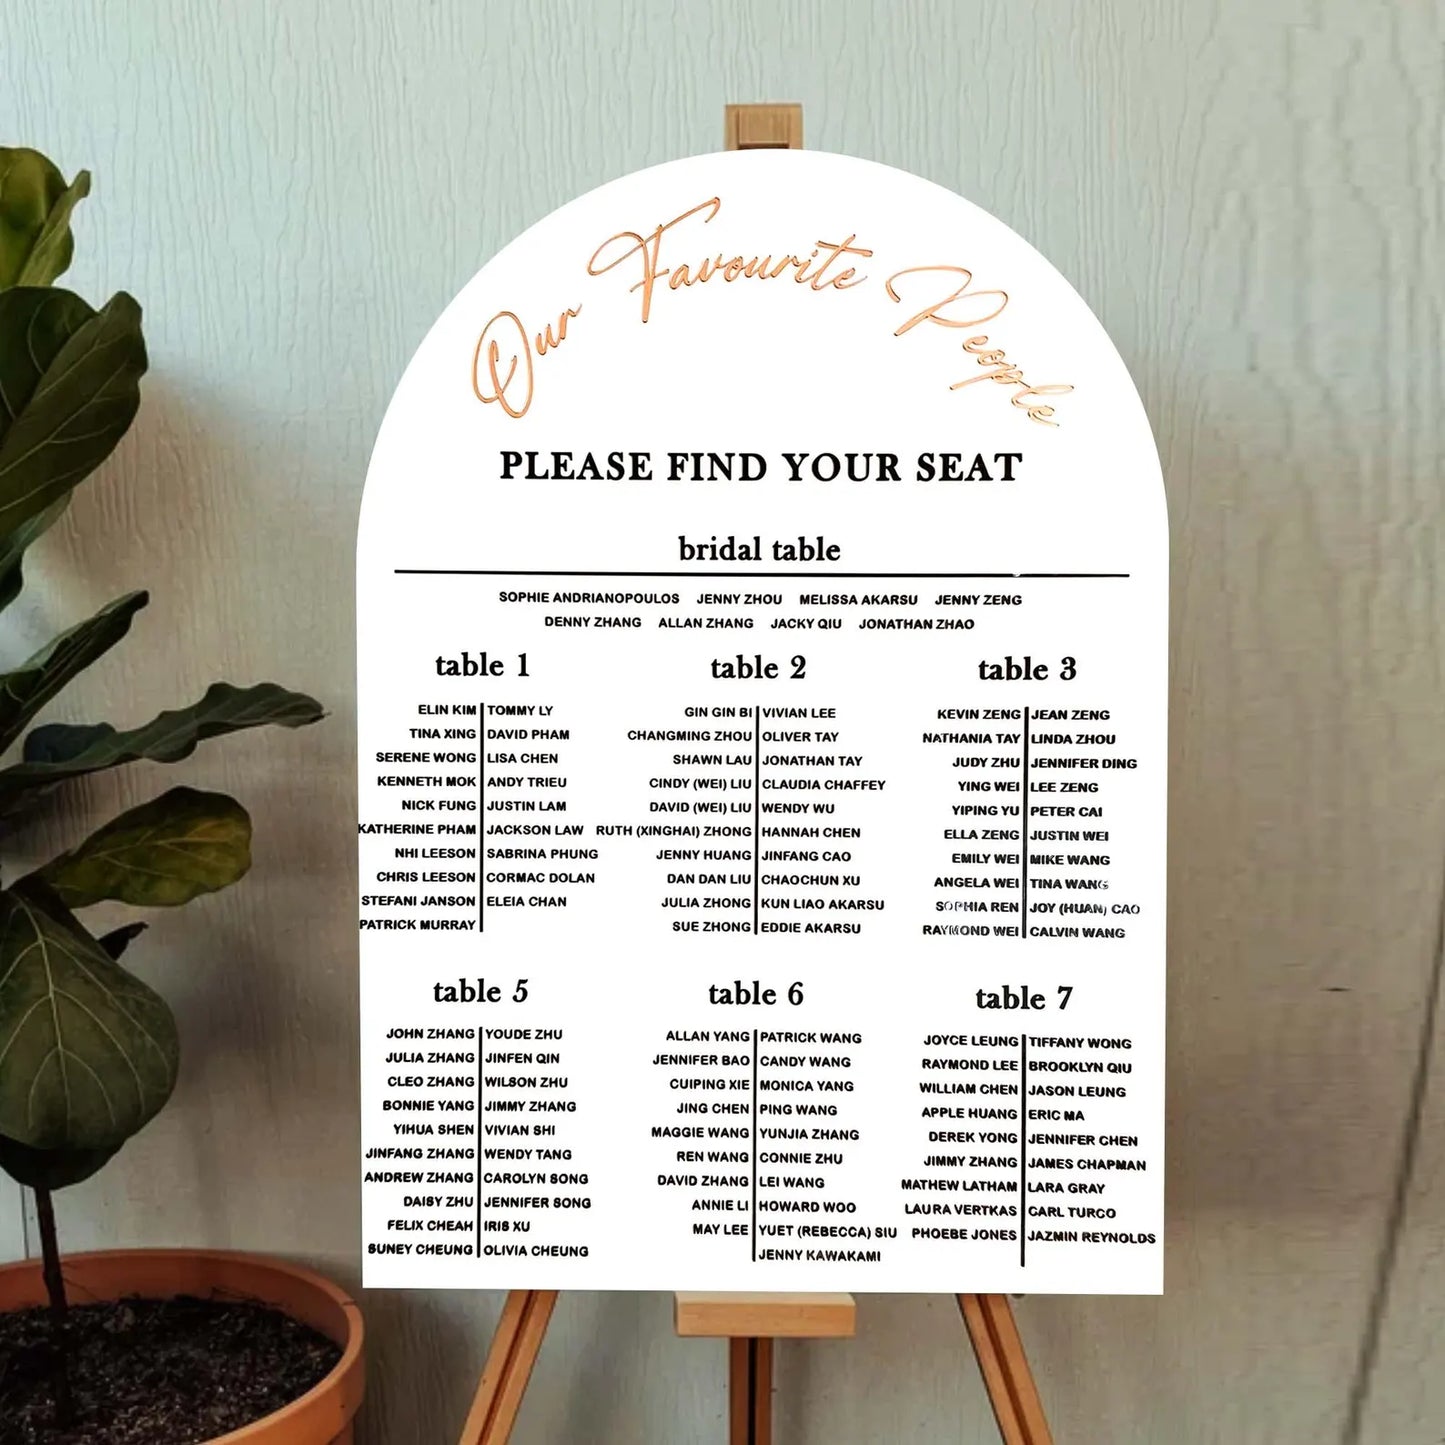 Our Favourite People
PLEASE FIND YOUR SEAT
bridal table
SOPHIE ANDRIANOPOULOS JENNY ZHOU MELISSA AKARSU JENNY ZENG
DENNY ZHANG ALLAN ZHANG JACKY QIU JONATHAN ZHAO
table 1
ELIN KIM TOMMY LY
TINA XING DAVID PHAM
SERENE WONG LISA CHEN
KENNETH MOK ANDY TRIEU
NICK FUNG JUSTIN LAM
KATHERINE PHAM JACKSON LAW
NHI LEESON SABRINA PHUNG
CHRIS LEESON CORMAC DOLAN
STEFANI JANSON ELEIA CHAN
PATRICK MURRAY
table 2
GIN GIN BI VIVIAN LEE
CHANGMING ZHOU OLIVER TAY
SHAWN LAU JONATHAN TAY
CINDY (WEI) LIU CLAUDIA CHAFFEY
DAVID (WEI) LIU WENDY WU
RUTH (XINGHAI) ZHONG HANNAH CHEN
JENNY HUANG JINFANG CAO
DAN DAN LIU CHAOCHUN XU
JULIA ZHONG KUN LIAO AKARSU
SUE ZHONG EDDIE AKARSU
table 3
KEVIN ZENG JEAN ZENG
NATHANIA TAY LINDA ZHOU
JUDY ZHU JENNIFER DING
YING WEI LEE ZENG
YIPING YU PETER CAI
ELLA ZENG JUSTIN WEI
EMILY WEI MIKE WANG
ANGELA WEI TINA WANG
SOPHIA REN JOY (HUAN) CAO
RAYMOND WEI CALVIN WANG
table 5
JOHN ZHANG YOUDE ZHU
JULIA ZHANG JINFEN QIN
CLEO ZHANG WILSON ZHU
BONNIE YANG JIMMY ZHANG
YIHUA SHEN VIVIAN SHI
JINFANG ZHANG WENDY TANG
ANDREW ZHANG CAROLYN SONG
DAISY ZHU JENNIFER SONG
FELIX CHEAH IRIS XU
SUNEY CHEUNG OLIVIA CHEUNG
table 6
ALLAN YANG PATRICK WANG
JENNIFER BAO CANDY WANG
CUIPING XIE MONICA YANG
JING CHEN PING WANG
MAGGIE WANG YUNJIA ZHANG
REN WANG CONNIE ZHU
DAVID ZHANG LEI WANG
ANNIE LI HOWARD WOO
MAY LEE YUET (REBECCA) SIU
JENNY KAWAKAMI
table 7
JOYCE LEUNG TIFFANY WONG
RAYMOND LEE BROOKLYN QIU
WILLIAM CHEN JASON LEUNG
APPLE HUANG ERIC MA
DEREK YONG JENNIFER CHEN
JIMMY ZHANG JAMES CHAPMAN
MATHEW LATHAM LARA GRAY
LAURA VERTKAS CARL TURCO
PHOEBE JONES JAZMIN REYNOLDS